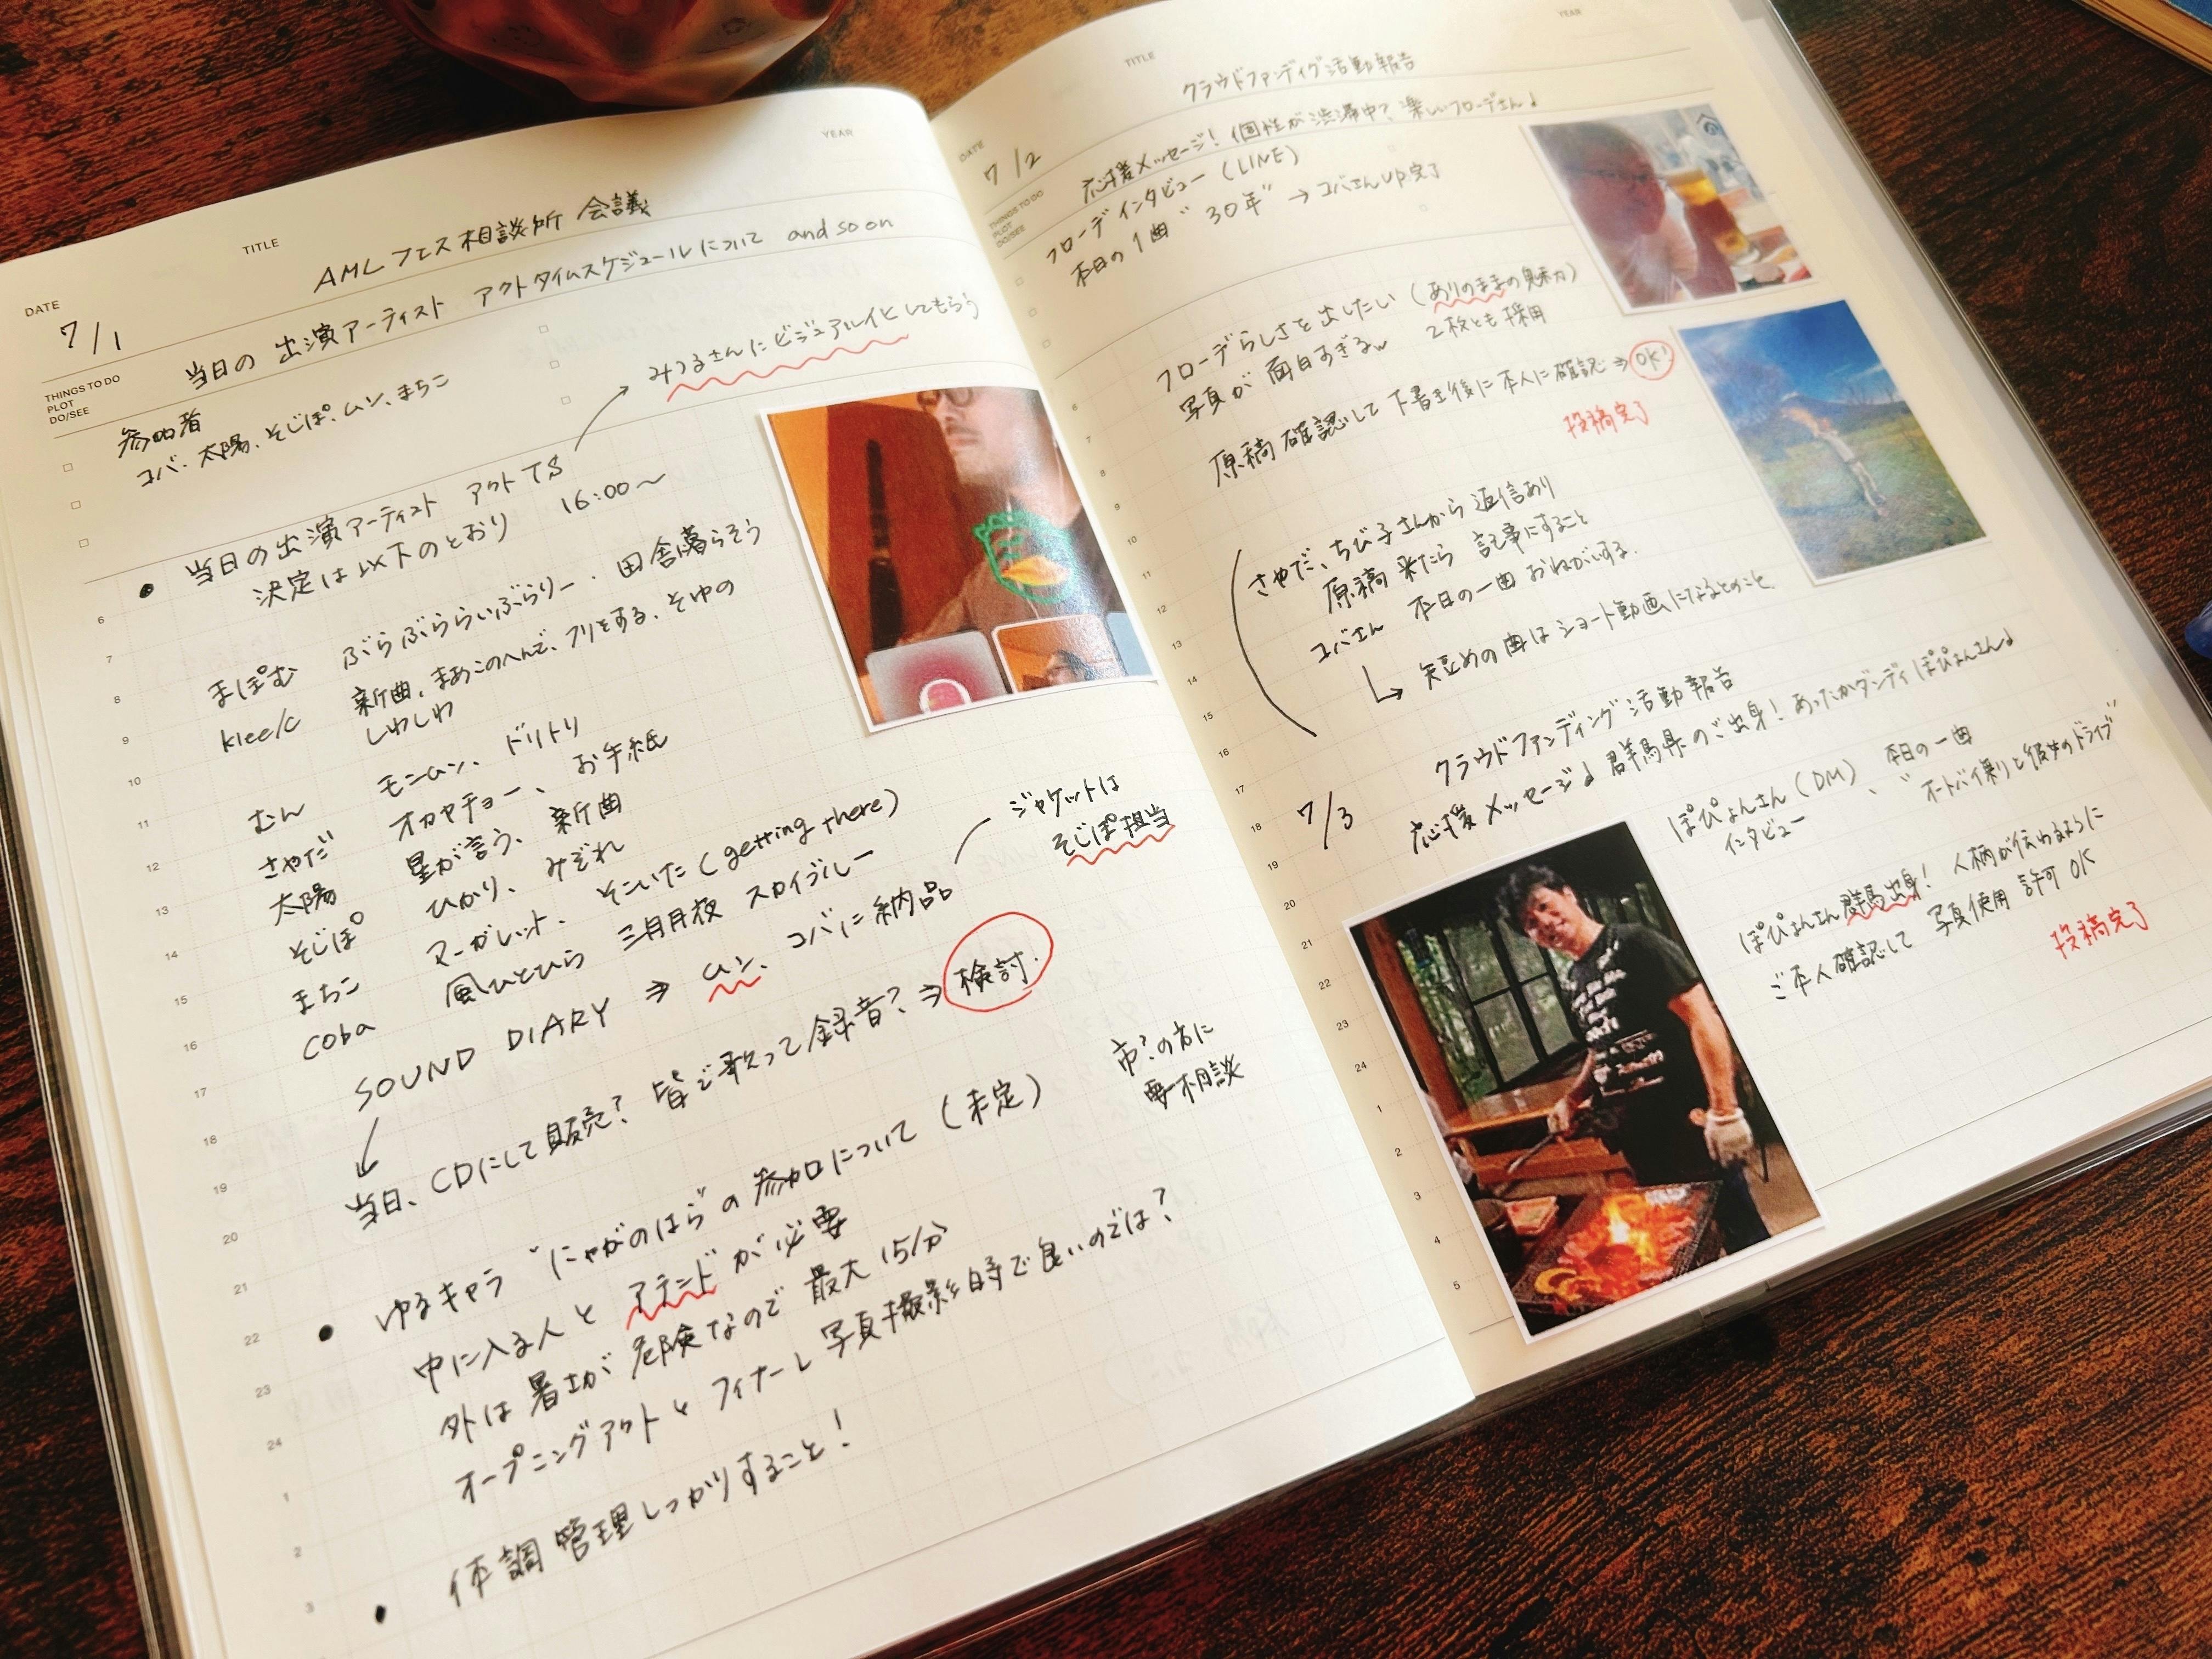 DATE
TITLE
YEAR
7/1
AMLフェス相談所 会議
当日の 出演アーティスト アクトタイムスケジュールについて and so on
THINGS TO DO
PLOT
DO/SEE
みつるさんにビジュアル化してもらう
参加者
コバ、太陽、そじぽ、ムン、まちこ
• 当日の出演アーティスト アクトTS
決定は以下のとおり 16:00〜
まぽむ ぶらぶららいぶらりー、田舎暮らそう
klee/c 新曲、まあこのへんで、フリをする、そゆの
しわしわ
むん モンムン、ドリトリ
さやだ オカヤチョー、お手紙
太陽 星が言う、新曲
そじぽ ひかり、みぞれ
まちこ マーガレット、そこいた(getting there)
coba 風ひとひら 三日月夜 スカイブルー
SOUND DIARY ⇒ ムン、コバに納品
ジャケットは
そじぽ担当
当日、CDにして販売? 皆で歌って録音? ⇒ 検討.
• ゆるキャラ "にゃがのはら"の参加について (未定)
市?の方に
要相談
中に入る人と アテンドが必要
外は暑さが危険なので 最大15分
オープニングアクトと フィナーレ 写真撮影時で良いのでは?
• 体調管理しっかりすること!
6
7
8
9
10
11
12
13
14
15
16
17
18
19
20
21
22
23
24
1
2
3
DATE
TITLE
YEAR
7/2
クラウドファンディグ活動報告
応援メッセージ! 個性が渋滞中? 楽しいフローデさん♩
THINGS TO DO
PLOT
DO/SEE
フローデインタビュー (LINE)
本日の1曲 "30年" → コバさんup完了
フローデらしさを出したい (ありのままの魅力)
写真が 面白すぎるw 2枚とも採用
原稿確認して 下書き後に本人に確認⇒OK!
投稿完了
さやだ、ちび子さんから 返信あり
原稿来たら 記事にすること
コバさん 本日の一曲 おねがいする.
短めの曲は ショート動画になるとのこと
7/3
クラウドファンディング活動報告
応援メッセージ♩ 群馬県のご出身! あったかダンディ ぽぴょんさん♩
ぽぴょんさん(DM)、本日の一曲
インタビュー "オートバイ乗りと彼女のドライブ"
ぽぴょんさん群馬出身! 人柄が伝わるように
ご本人確認して 写真使用 許可OK
投稿完了
6
7
8
9
10
11
12
13
14
15
16
17
18
19
20
21
22
23
24
1
2
3
4
5